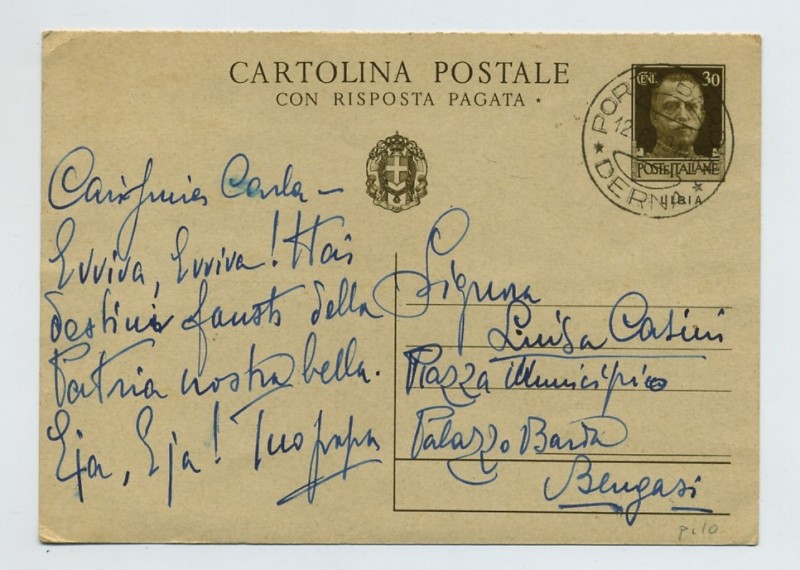 CARTOLINA POSTALE
CON RISPOSTA PAGATA
CENT. 30
POSTE ITALIANE
LIBIA
PORTO
12
DERNA
Carla –
Evviva, Evviva! Hai
destini fausti della
Patria nostra bella.
Eja, Eja! Tuo papa
Signora
Luisa Casini
Piazza Municipio
Palazzo Barda
Bengasi